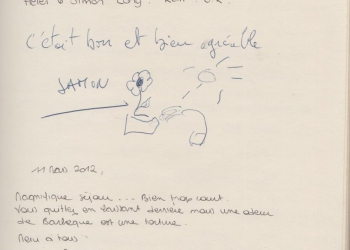 C'était bon et bien agréable
JAMON
11 Mars 2012,
Magnifique séjour ... Bien trop court.
Vous quitter en laissant derrière nous une odeur
de Barbecue est une torture.
Merci à tous.